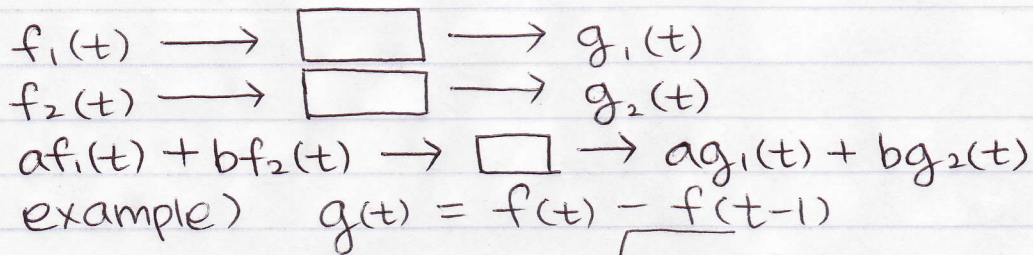 f₁(t) → □ → g₁(t)
f₂(t) → □ → g₂(t)
af₁(t) + bf₂(t) → □ → ag₁(t) + bg₂(t)
example) g(t) = f(t) - f(t-1)